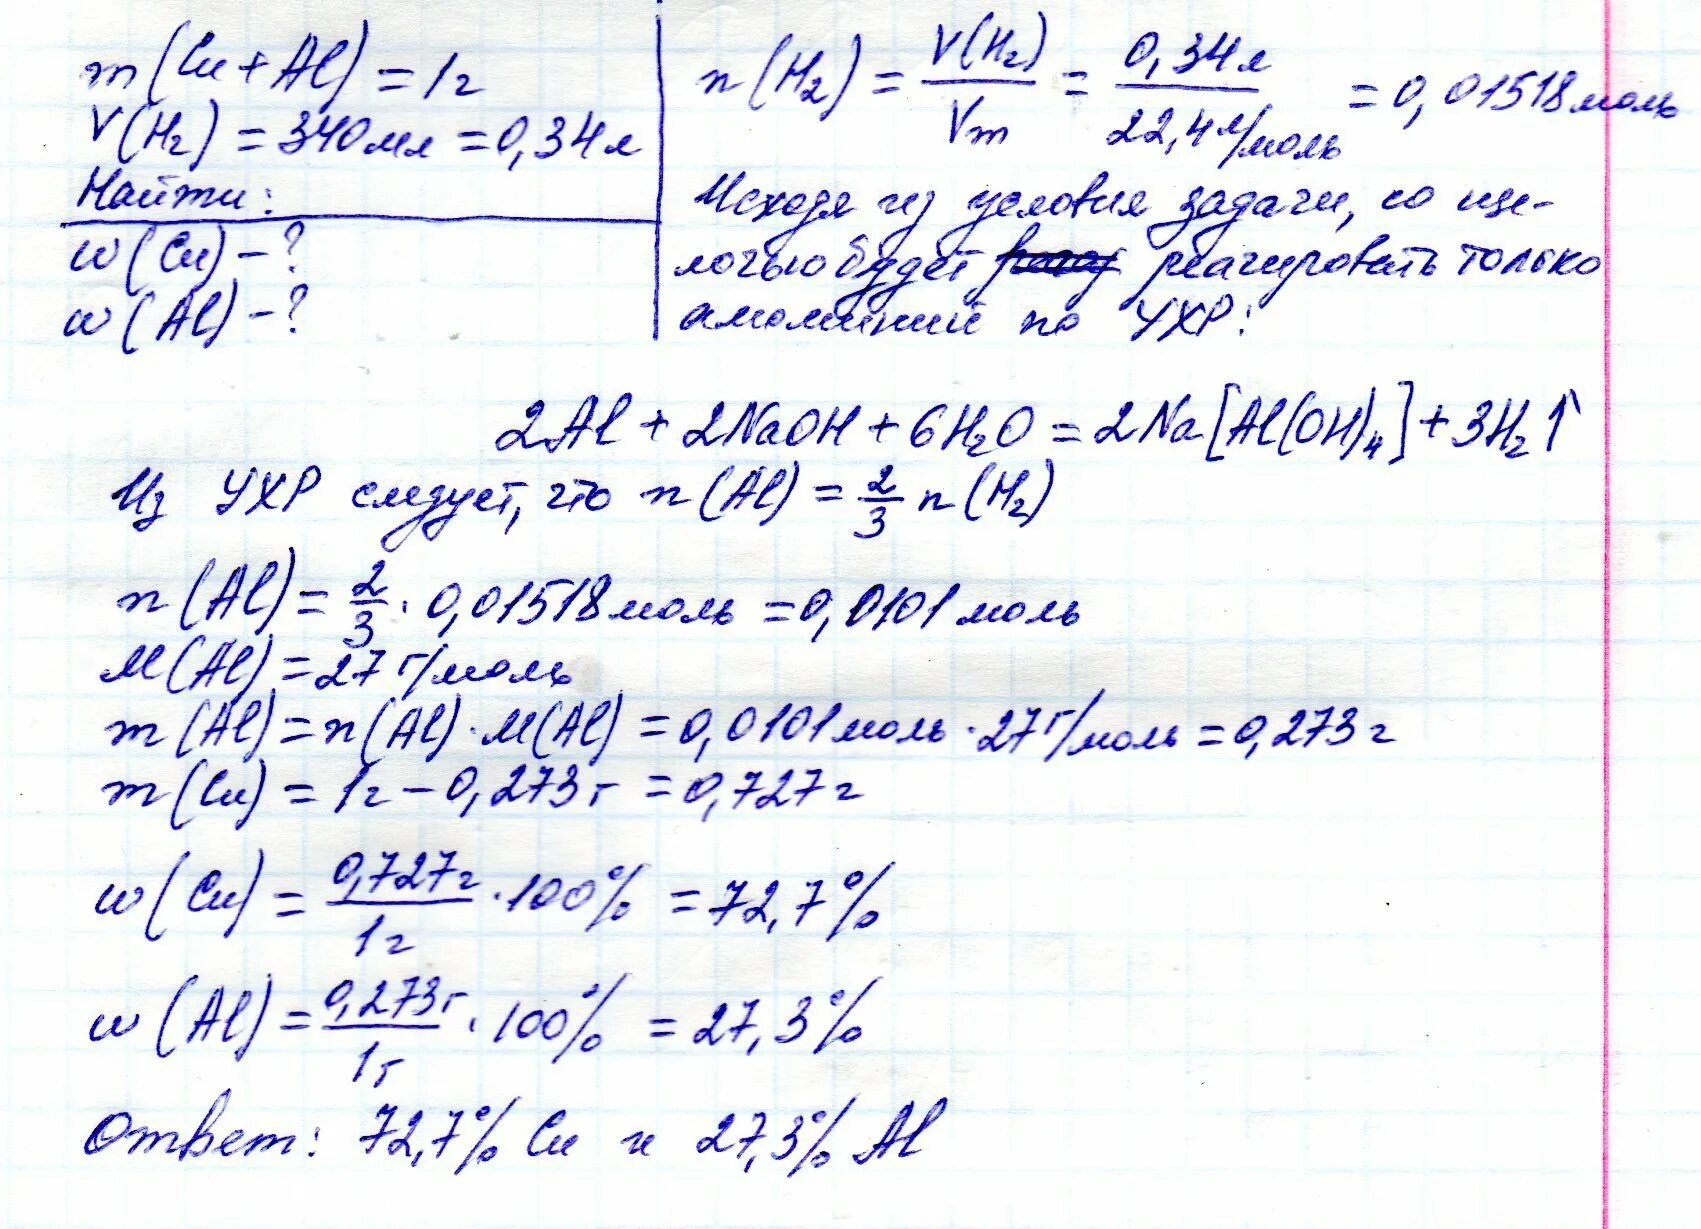 m(Cu+Al)=1г
V(H₂)=340мл=0,34л
Найти:
w(Cu)-?
w(Al)-?
n(H₂) = V(H₂)/Vm = 0,34л/22,4л/моль = 0,01518моль
Исходя из условия задачи, со ще-
лочью будет реагировать только
алюминий по УХР:
2Al+2NaOH+6H₂O=2Na[Al(OH)₄]+3H₂↑
Из УХР следует, что n(Al)=2/3 n(H₂)
n(Al)=2/3·0,01518моль=0,0101моль
M(Al)=27г/моль
m(Al)=n(Al)·M(Al)=0,0101моль·27г/моль=0,273г
m(Cu)=1г-0,273г=0,727г
w(Cu)=0,727г/1г·100%=72,7%
w(Al)=0,273г/1г·100%=27,3%
Ответ: 72,7% Cu и 27,3% Al